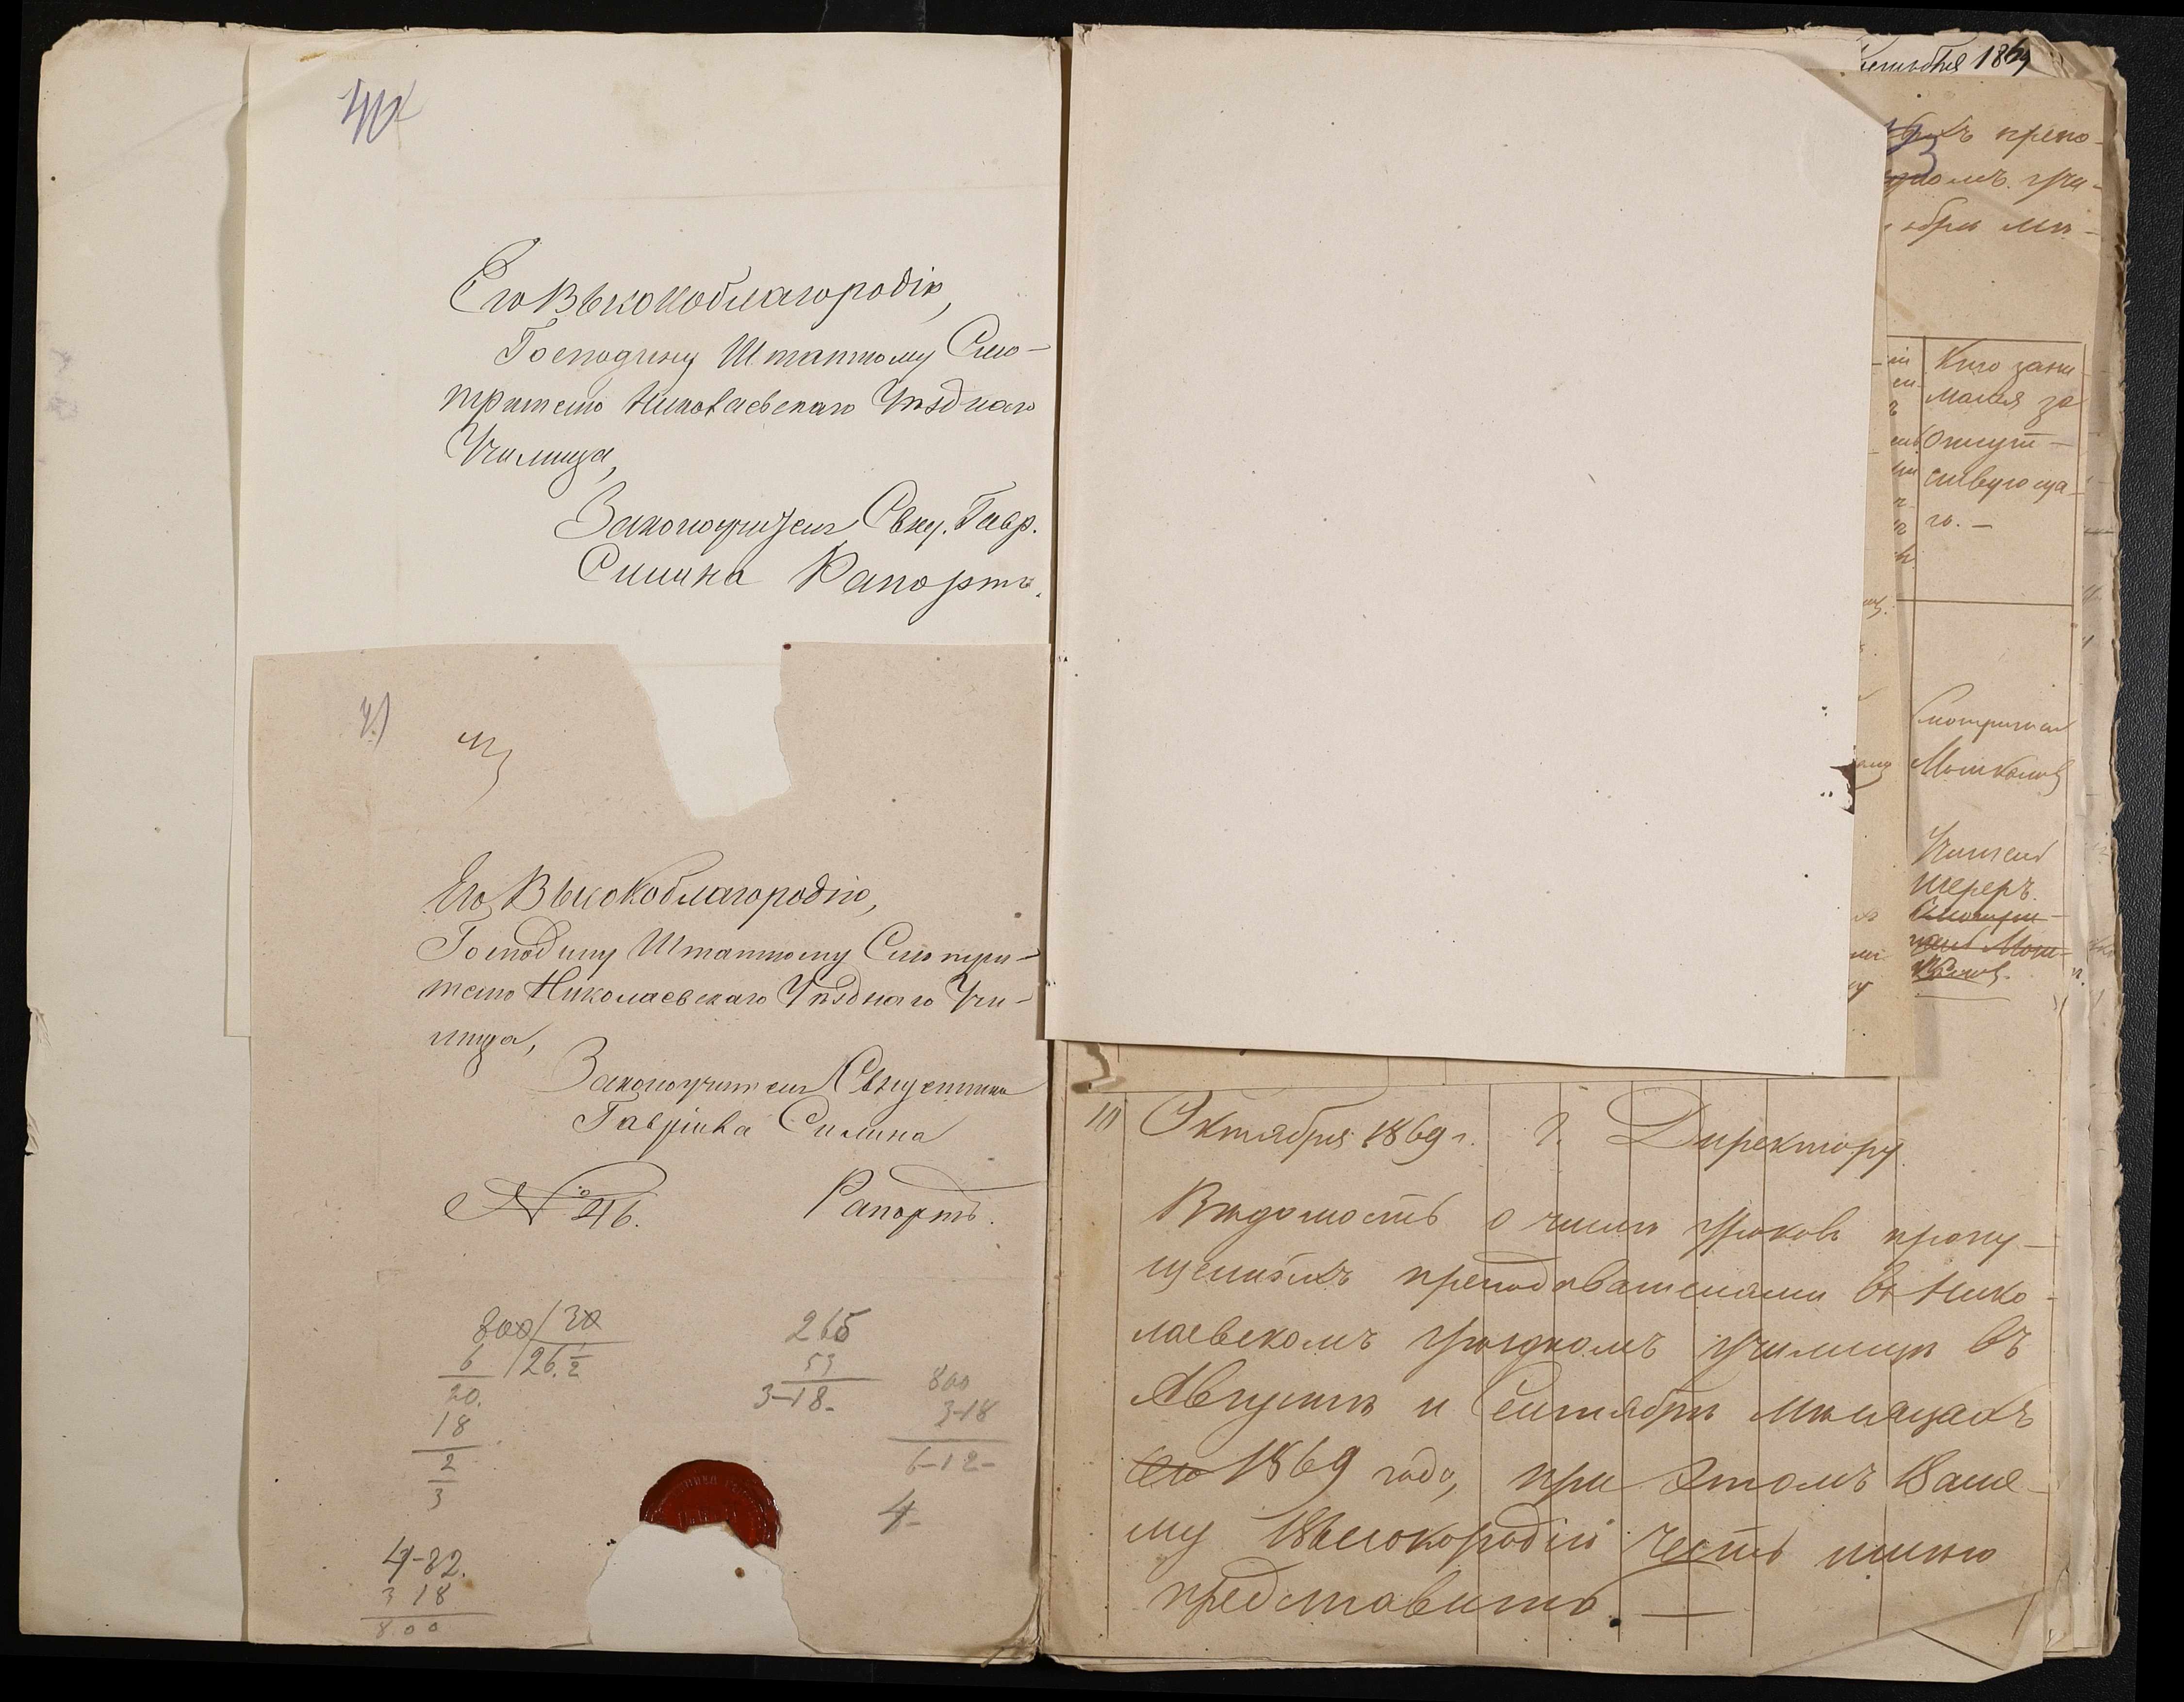 Его Высокоблагородію,
Господину Штатному Смо-
трителю Николаевскаго Уѣзднаго
Училища,
Законоучителя Свящ. Гавр.
Силина Рапортъ.
Его Высокоблагородію,
Господину Штатному Смотри-
телю Николаевскаго Уѣзднаго Учи-
лища,
Законоучителя Священника
Гавріила Силина
№ 46. Рапортъ.
800/30
6 26.1/2
20.
18
2
3
265
53
3-18-
800
3-18
6-12-
4-
4-82.
3 18
8.00
1869
препо-
учи-
Кто зани
мался за
отсут-
ствующа-
го. —
Смотритель
Мошковъ
Учитель
Шереръ.
10 Октября 1869 г. Г. Директору.
Вѣдомость о числѣ уроковъ пропу-
щенныхъ преподавателями въ Нико-
лаевскомъ уѣздномъ училищѣ въ
Августѣ и Сентябрѣ мѣсяцахъ
1869 года, при этомъ Ваше-
му Высокородію честь имѣю
представить. —